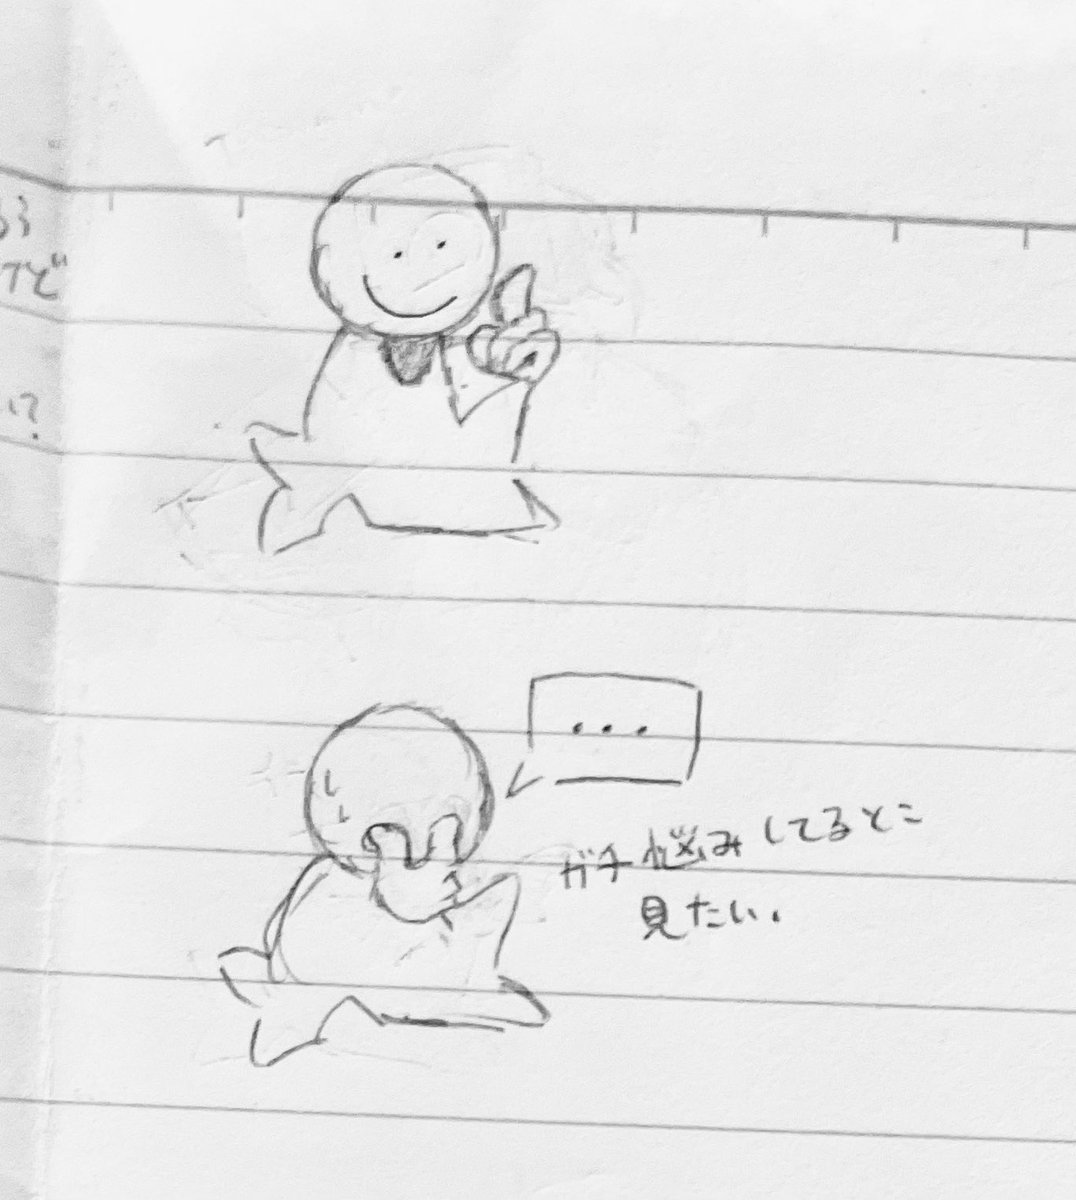 ...
ガチ悩みしてるとこ
見たい.